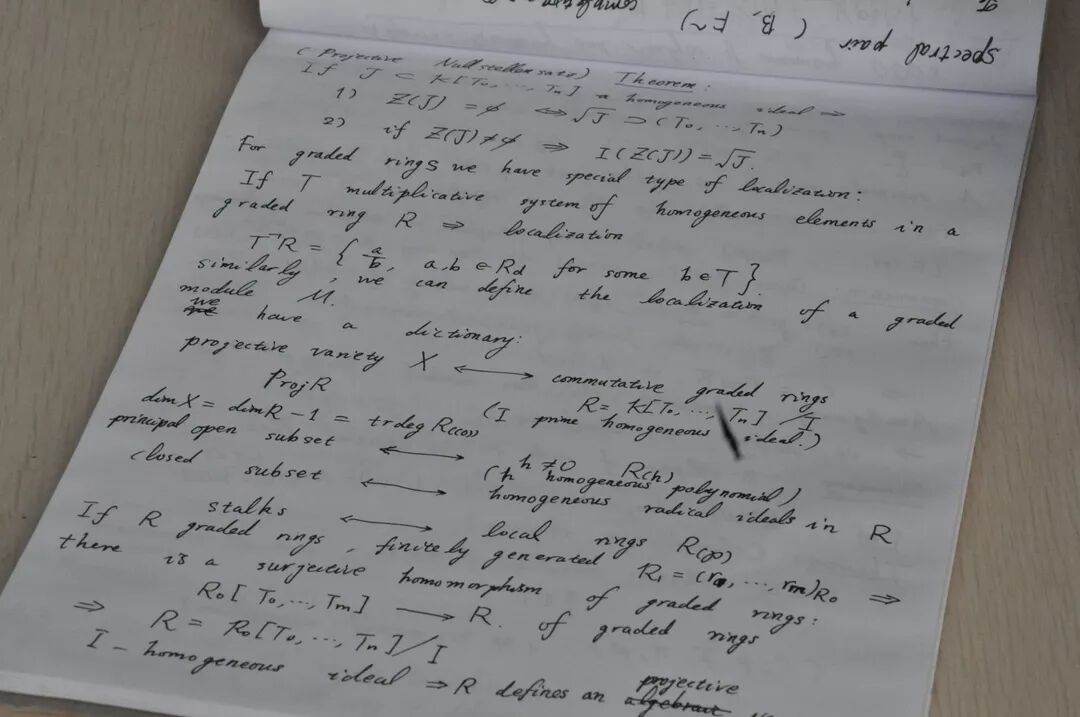 spectral pair ( B, F~)
(Projective Nullstellensatz) Theorem:
If J ⊂ K[T₀, ..., Tₙ] a homogeneous ideal ⇒
1) Z(J) = ∅ ⇔ √J ⊃ (T₀, ..., Tₙ)
2) if Z(J) ≠ ∅ ⇒ I(Z(J)) = √J.
For graded rings we have special type of localization:
If T multiplicative system of homogeneous elements in a
graded ring R ⇒ localization
T⁻¹R = { a/b, a,b ∈ R_d for some b ∈ T }.
similarly, we can define the localization of a graded
module M.
we have a dictionary:
projective variety X ⟷ commutative graded rings
Proj R R = K[T₀, ..., Tₙ] / I
dim X = dim R - 1 = trdeg R((0)) (I prime homogeneous ideal.)
principal open subset ⟷ h ≠ 0 R(h)
(h homogeneous polynomial)
closed subset ⟷ homogeneous radical ideals in R
stalks ⟷ local rings R(p)
If R graded rings, finitely generated R₁ = (r₀, ..., rₘ)R₀ ⇒
there is a surjective homomorphism of graded rings:
R₀[T₀, ..., Tₘ] ⟶ R. of graded rings
⇒ R = R₀[T₀, ..., Tₙ] / I
I - homogeneous ideal ⇒ R defines an projective